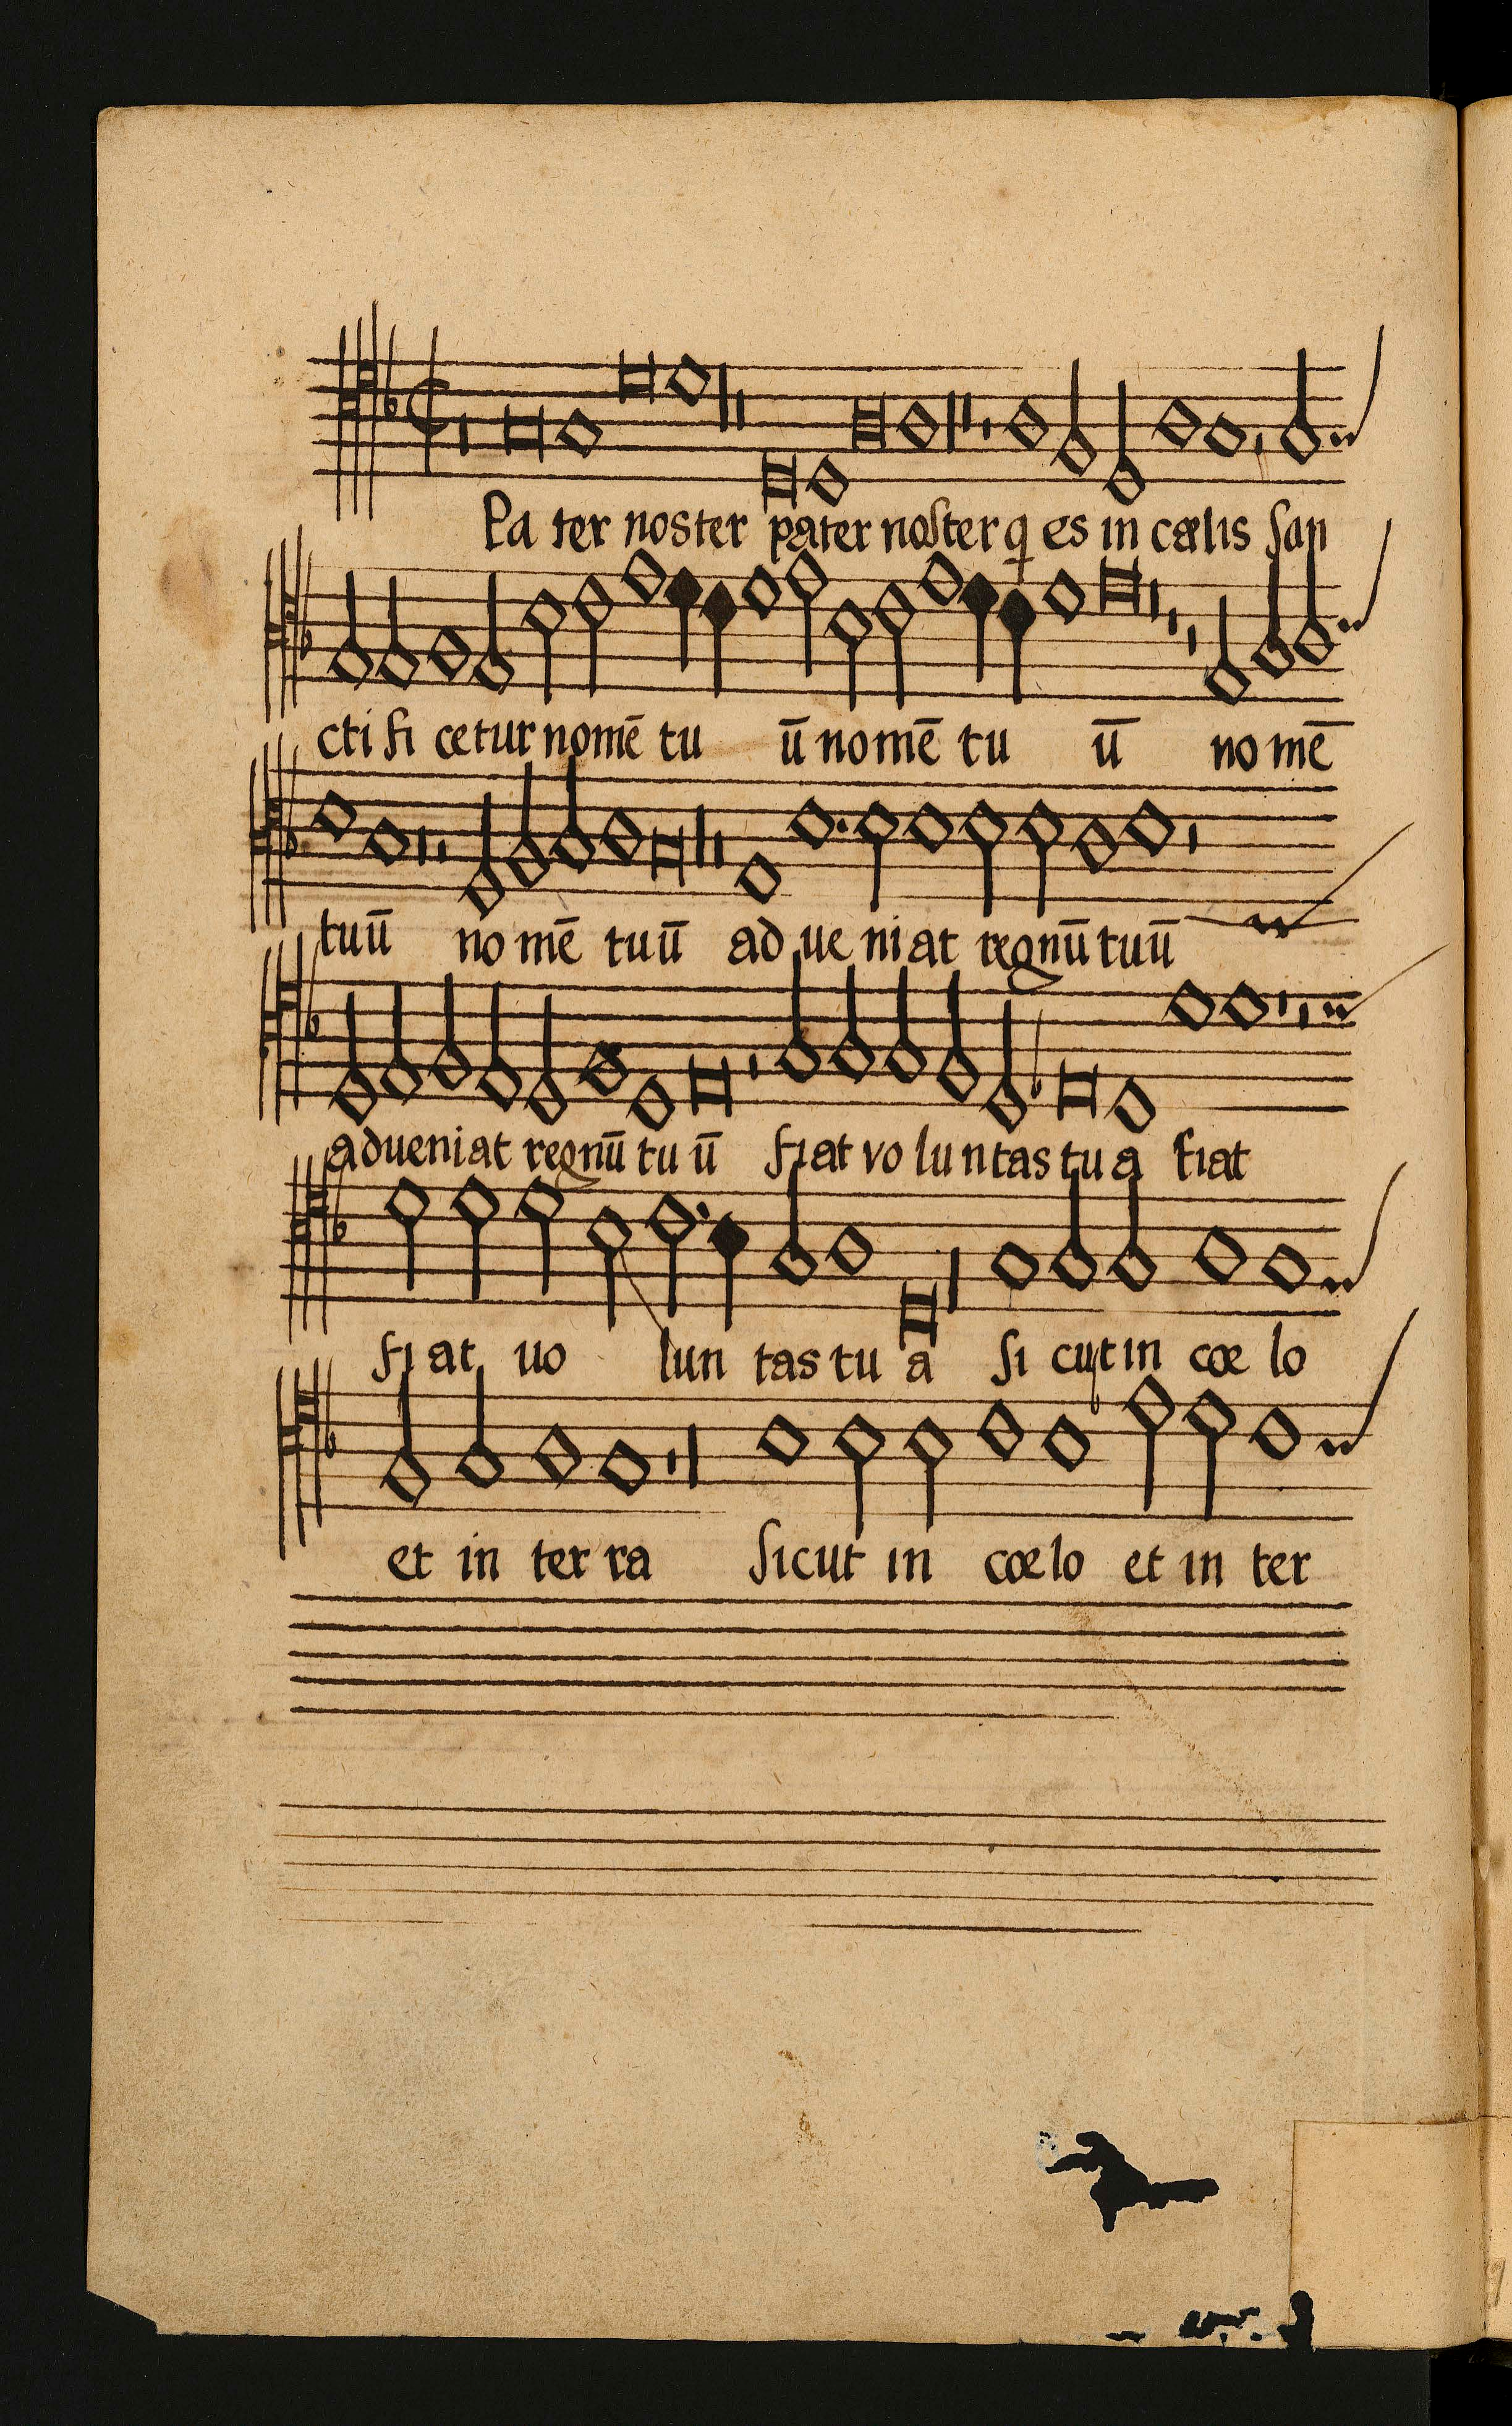 Pa ter noster pater noſter q̨ es in cælis ſan
cti fi cetur nomē tu ū nomē tu ū no mē
tuū no mē tuū ad ue niat regnū tuū
adueniat regnū tu ū fiat vo luntas tu a fiat
fi at uo lun tas tu a ſi cut in cœ lo
et in ter ra ſicut in cœlo et in ter